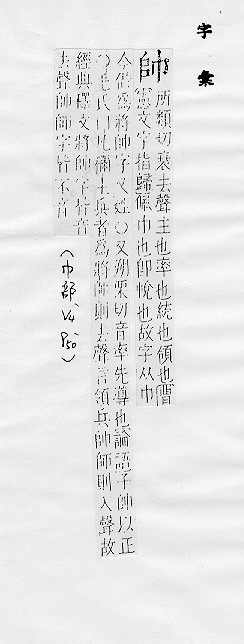 字彙
帥 所類切衰去聲主也率也統也領也曹
憲文字指歸佩巾也卽帨也故字从巾
今借爲將帥字又姓○又朔栗切音率先導也論語子帥以正
毛氏曰凡稱主兵者爲將帥則去聲言領兵帥師則入聲故
經典釋文將帥字皆音
去聲帥師字皆不音
(巾部, P50)